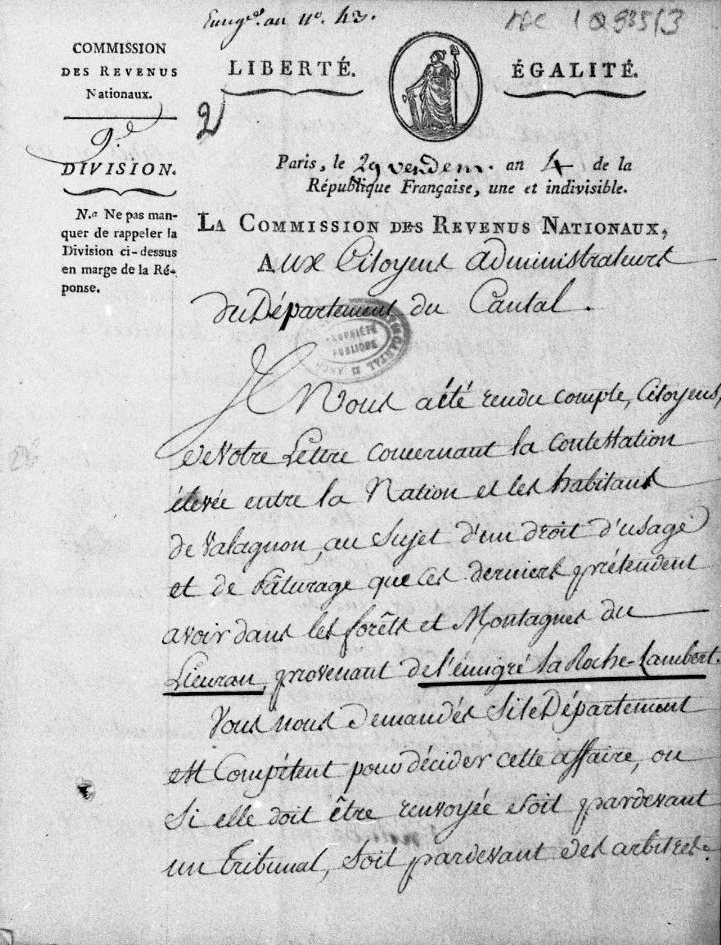 Eurg.al an n.o 43.
1 Q 835/3
COMMISSION
DES REVENUS
Nationaux.
LIBERTÉ.
ÉGALITÉ.
2
9.e
DIVISION.
Paris, le 29 vendem. an 4 de la
République Française, une et indivisible.
N.a Ne pas man-
quer de rappeler la
Division ci-dessus
en marge de la Ré-
ponse.
LA COMMISSION DES REVENUS NATIONAUX,
Aux Citoyens administrateurs
du Département du Cantal.
PROPRIÉTÉ
PUBLIQUE
CANTAL
Il Nous a été rendu compte, Citoyens,
de votre Lettre concernant la contestation
élevée entre la Nation et les habitans
de valagnon, au sujet d'un droit d'usage
et de Pâturage que ces derniers prétendent
avoir dans les forêts et Montagnes du
Lieuran, provenant de l'émigré la Roche-Lambert.
Vous nous demandés si le Département
est Compétent pour décider cette affaire, ou
si elle doit être renvoyée soit pardevant
un Tribunal, soit pardevant des arbitres.